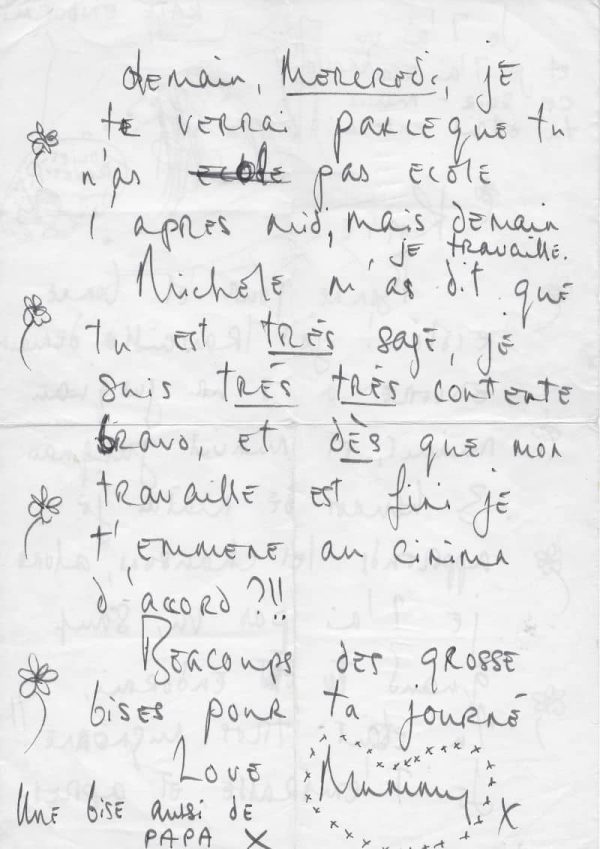 demain, MERCREDi, jE
tE VERRAi PARCEQUE tu
n'as ecole pas ECOLE
l'APRES Mid, MAis dEMAiN
jE TRAVAillE.
MichèlE m'as dit quE
tu Est TRÈS sagE, jE
suis TRÈS TRÈS CONTENTE
BRAVO, Et dÈS quE mon
TRAVAillE Est fini jE
t'EMMENE AU CiNÉMA
d'ACCORD ?!!
BEACOUPS dES gROSSE
bisEs pOUR ta jOURNÉ
LOVE Mummy
UNE bisE aussi dE
PAPA X X